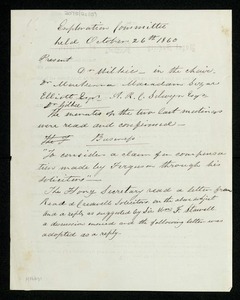 Exploration Committee
held October 26th 1860
Present
Dr Wilkie - in the chair
Dr Mackenna Macadam Esqrs
Elliott Esqr A. R. C. Selwyn Esqr
Dr Gillbee
The minutes of the two last meetings
were read and confirmed
Business
"To consider a claim for compensa
tion made by Ferguson through his
solicitors"
The Hony Secretary read a letter from
Read & on the subject
and a reply as suggested by Sir Wm F. Stawell
a discussion ensued and the following letter was
adopted as a reply.